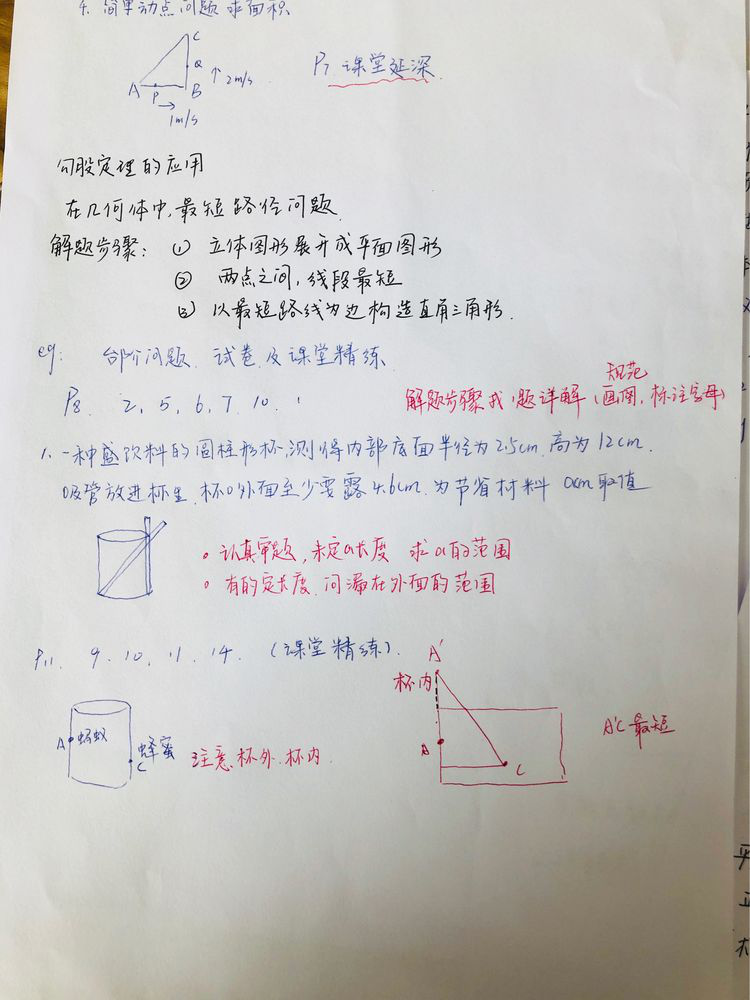 4. 简单动点问题求面积
C
Q
↑ 2m/s
A P B
→
1m/s
P7 课堂延深
勾股定理的应用
在几何体中,最短路径问题
解题步骤: ① 立体图形展开成平面图形
② 两点之间,线段最短
③ 以最短路线为边构造直角三角形.
eg: 台阶问题. 试卷及课堂精练
P8 2, 5, 6, 7 10.
规范
解题步骤 题详解 (画图, 标注字母)
1. 一种盛饮料的圆柱形杯,测得内部底面半径为2.5cm,高为12cm.
吸管放进杯里,杯口外面至少要露4.6cm.为节省材料 acm取值
。认真审题,未定a长度 求a的范围
。有的定长度,问漏在外面的范围
P11 9. 10. 11. 14. (课堂精练).
A 蚂蚁
蜂蜜
C
注意杯外.杯内.
A'
杯内
A
C
A'C最短
平